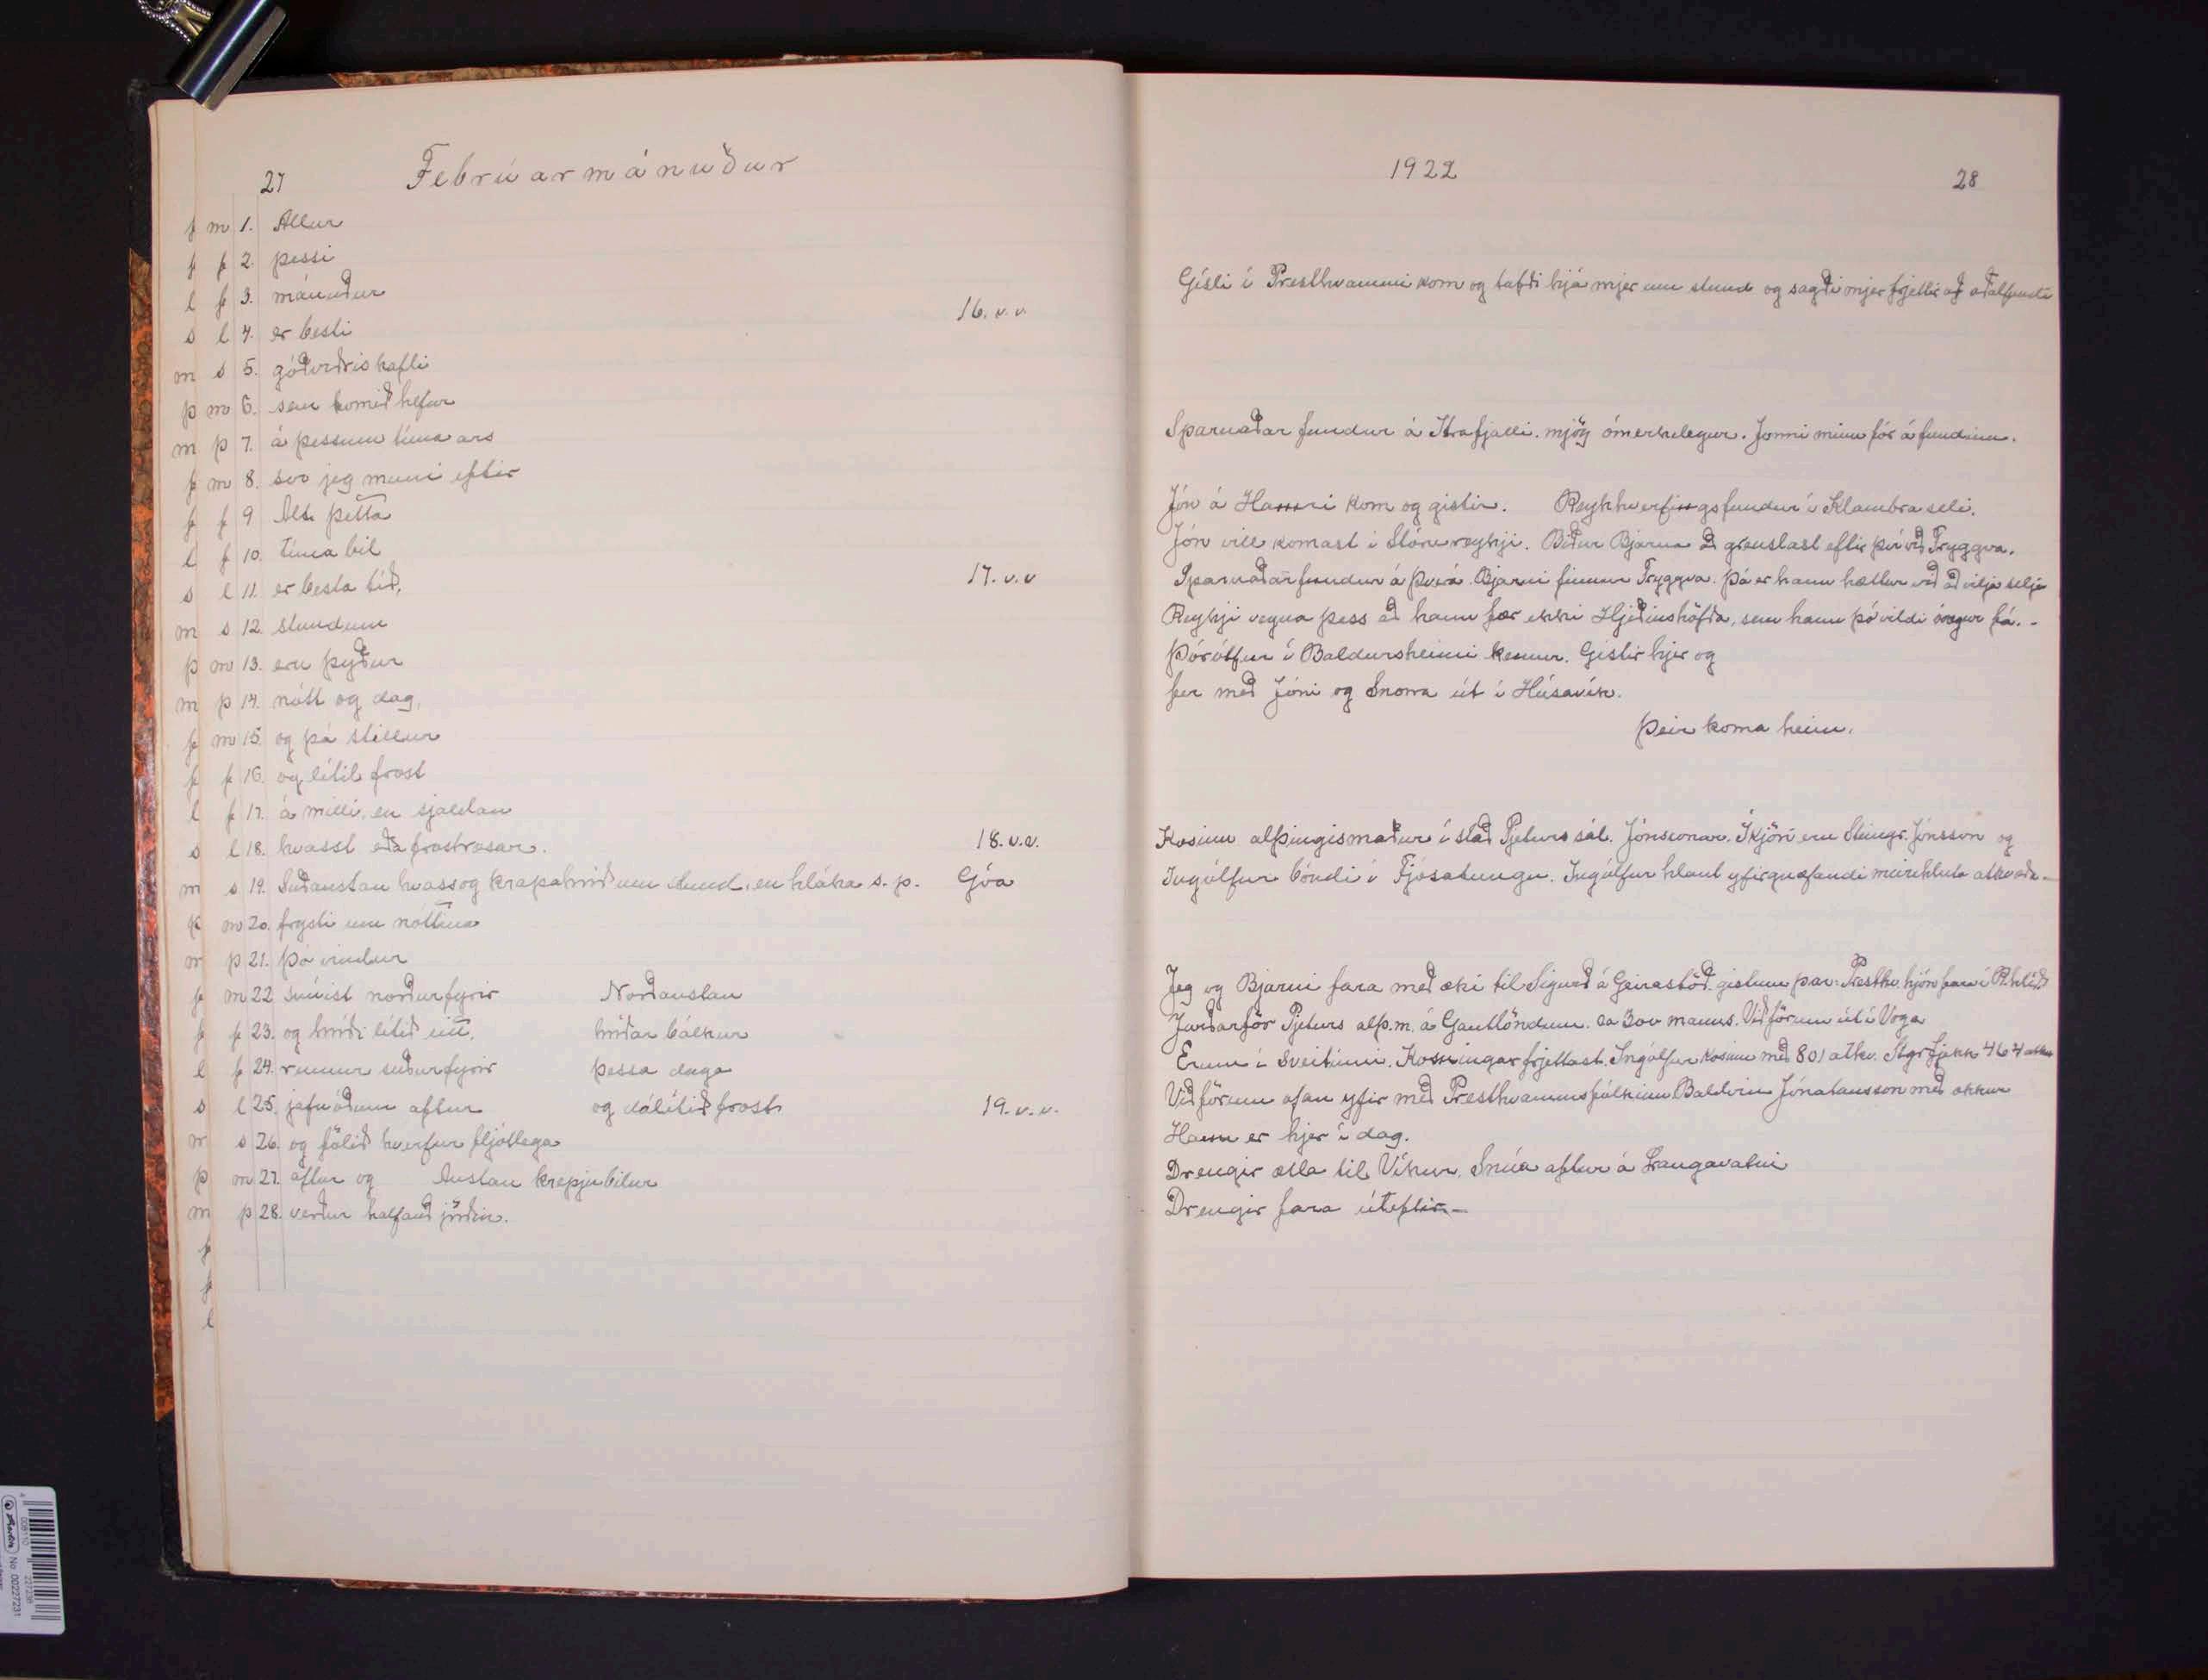 27 Febrúarmánuður
f m 1. Allur
f f 2. þessi
l f 3. mánuður
s l 4. er besti 16. v. v.
m s 5. góðviðriskafli
þ m 6. sem komið hefur
m þ 7. á þessum tíma ars
f m 8. svo jeg muni eftir
f f 9 Alt þetta
l f 10. tímabil
s l 11. er besta tíð, 17. v. v
m s 12. stundum
þ m 13. eru þýður
m þ 14. nótt og dag,
f m 15. og þá stillur
f f 16. og lítil frost
l f 17. á milli, en sjaldan
s l 18. hvasst eða frostrosar. 18. v. v.
m s 19. Suðaustan hvass og krapahríð um stund, en hláka s. p. Góa
þ m 20. frysti um nóttina
m þ 21. Þó vindur
f m 22 snúist norðurfyrir Norðaustan
f f 23. og hríði lítið eitt, hríðarbálkur
l f 24. rennur suðurfyrir þessa daga
s l 25. jafnóðum aftur og dálítið frost. 19. v. v.
m s 26. og fölið hverfur fljótlega
þ m 27. aftur og Austan krepjubilur
m þ 28. verður halfauð jörðin.
f
f
l
1922 28
Gísli í Presthvammi kom og tafði hjá mjer um stund og sagði mjer frjettir af aðalfundi
Sparnaðar fundur á Ytrafjalli. mjög ómerkilegur. Jonni minn fór á fundinn.
Jón á Hamri kom og gistir. Reykhverfingsfundur í Klambraseli.
Jón vill komast í Stórureykji. Biður Bjarna að grenslast eftir því við Tryggva.
Sparnaðarfundur á Þverá. Bjarni finnur Tryggva. Þá er hann hættur við að vilja selja
Reykji vegna þess að hann fær ekki Hjeðinshöfða, sem hann þó vildi óvægur fá. -
Þórólfur í Baldursheimi kemur. Gistir hjer og
fer með Jóni og Snorra út í Húsavík.
Þeir koma heim.
Kosinn alþingismaður í stað Pjeturs sál. Jónssonar. Í kjöri eru Steingr. Jónsson og
Ingólfur bóndi í Fjósatungu. Ingólfur hlaut yfirgnæfandi meirihluta atkvæða -
Jeg og Bjarni fara með æki til Sigurð á Geirastöð. gistum þar. Presthv. hjón fara í R.hlíð
Jarðarför Pjeturs alþ.m. á Gautlöndum. ca 300 manns. Við förum út í Voga
Erum í Sveitinni. Kosningar frjettast. Ingólfur kosinn með 801 atkv. Stgr fjekk 464 atkv
Við förum ofan yfir með Presthvammsfólkinu Baldvin Jónatansson með okkur
Hann er hjer í dag.
Drengir ætla til Víkur. Snúa aftur á Langavatni
Drengir fara úteftir -